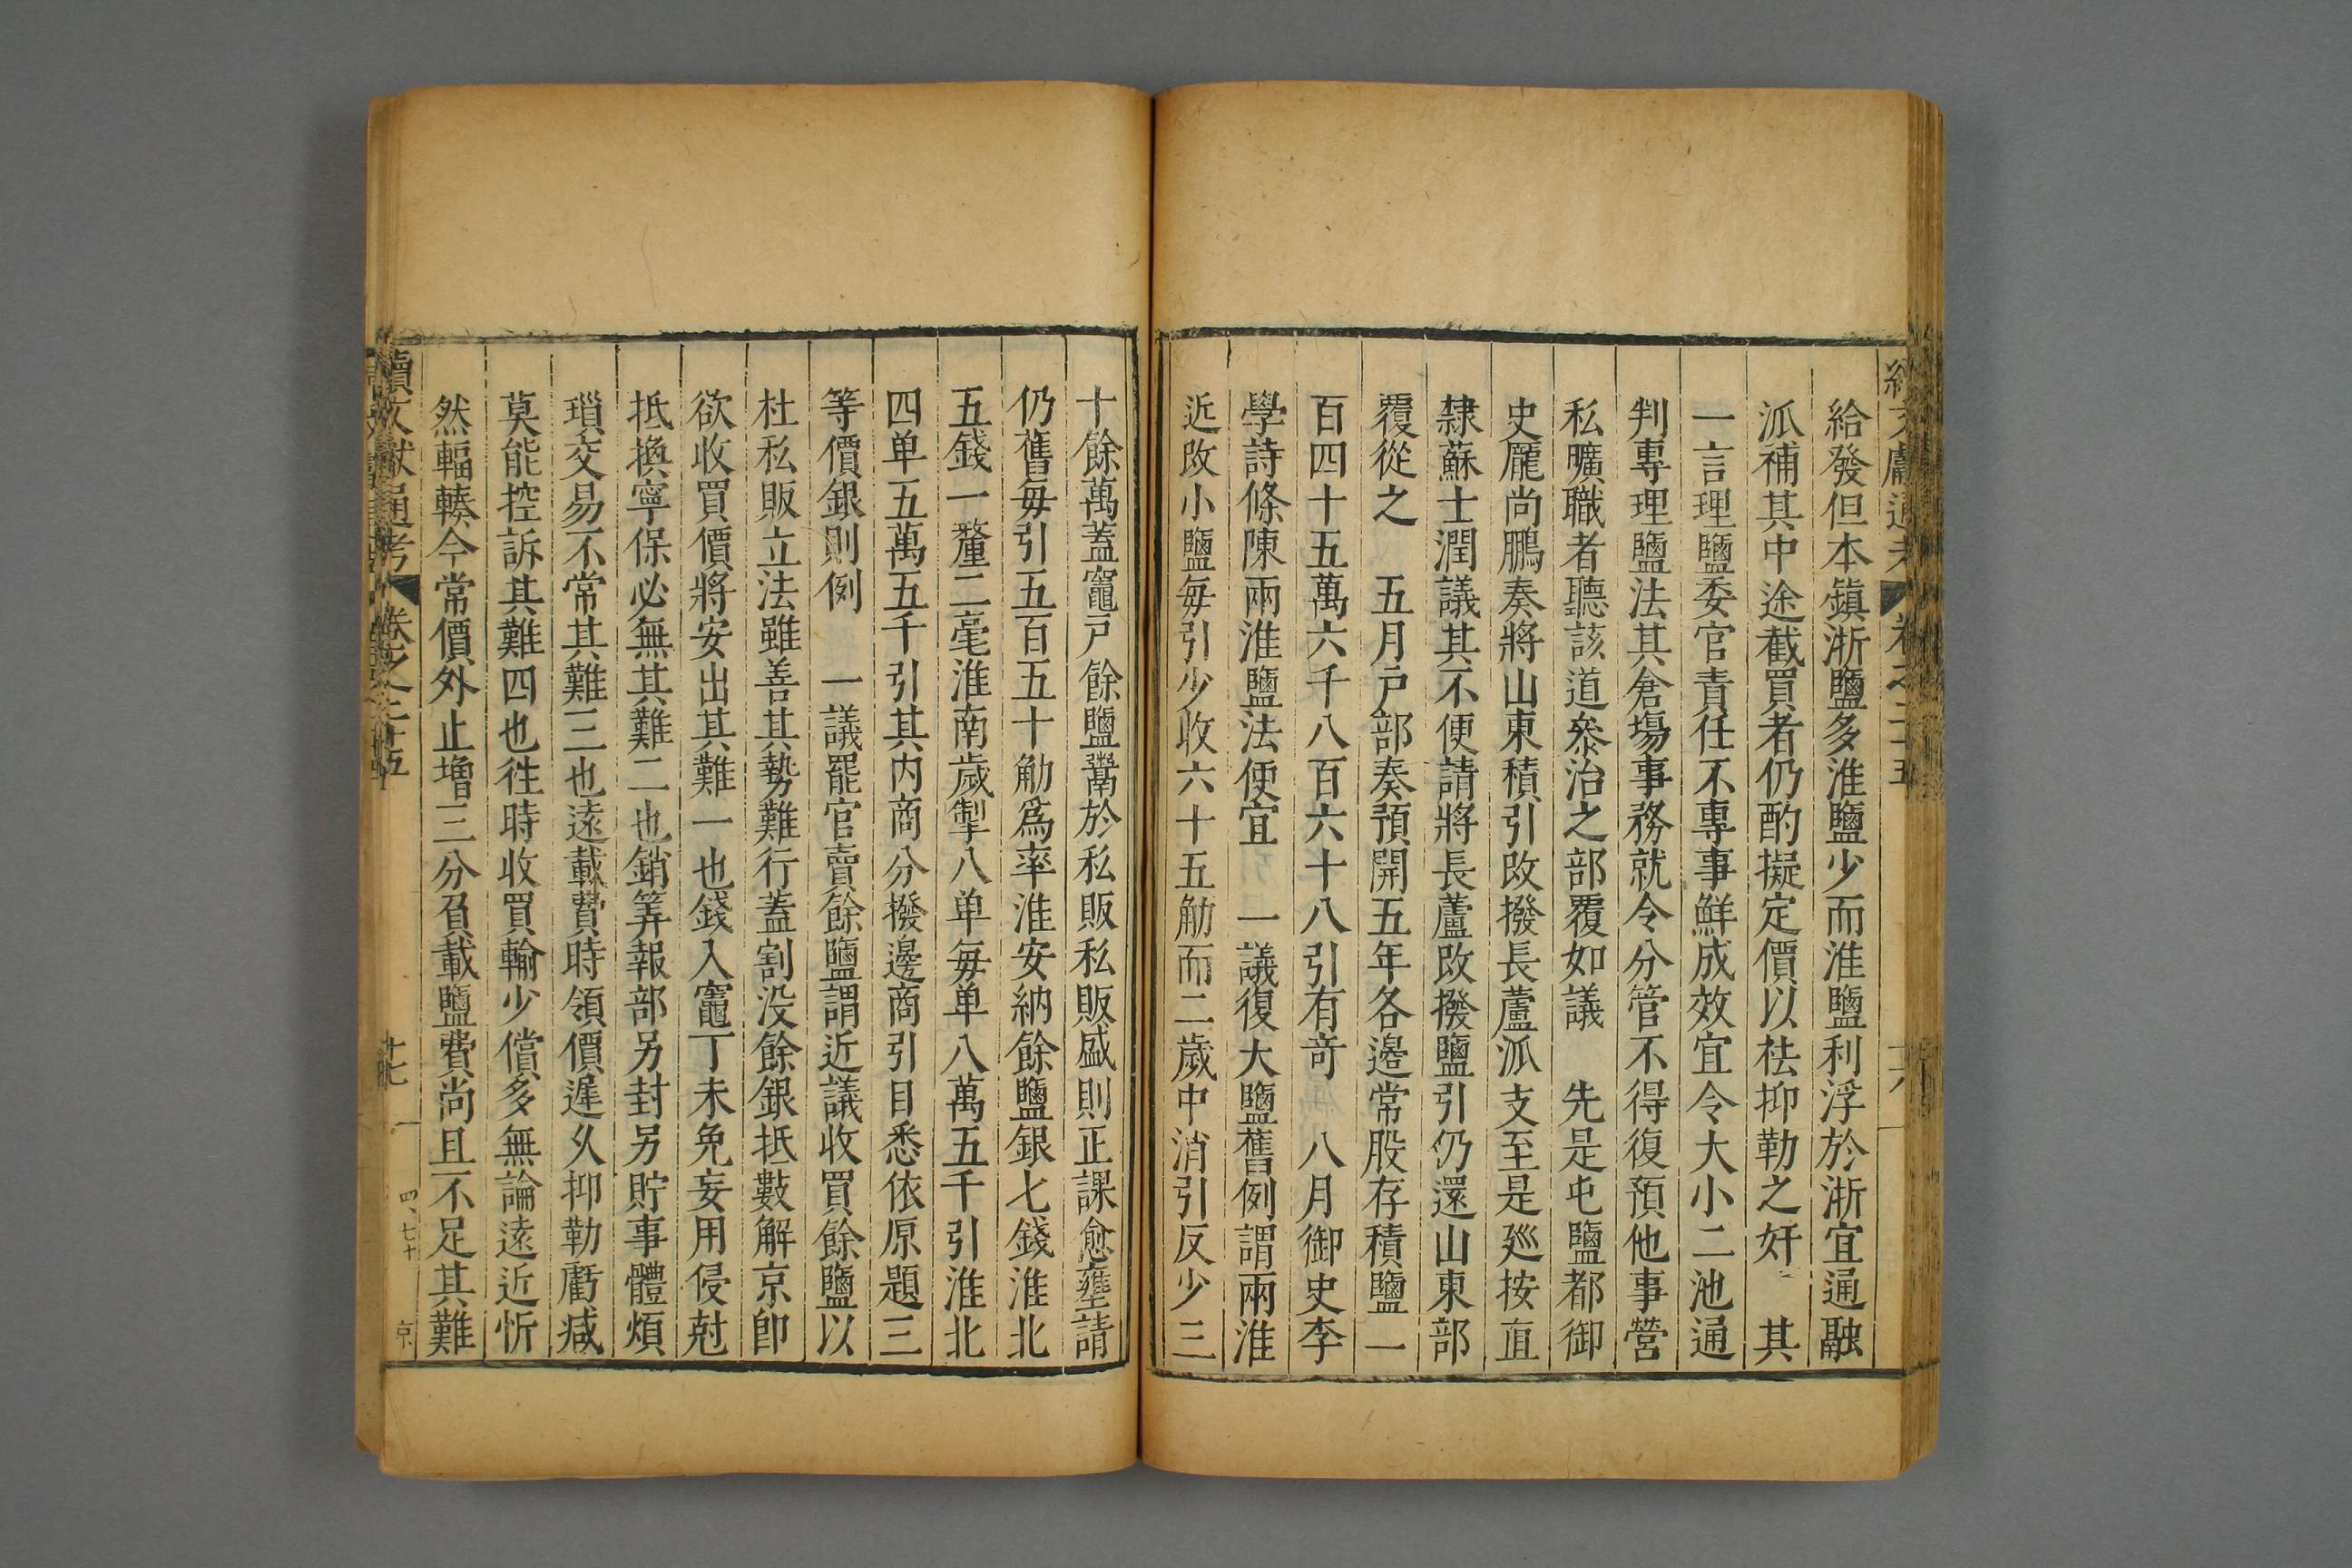 續文獻通考 卷之二十五 十六
給發但本鎮浙鹽多淮鹽少而淮鹽利浮於浙宜通融
派補其中途截買者仍酌擬定價以袪抑勒之奸　其
一言理鹽委官責任不專事鮮成效宜令大小二池通
判專理鹽法其倉塲事務就令分管不得復預他事營
私曠職者聽該道叅治之部覆如議　先是屯鹽都御
史龐尚鵬奏將山東積引改撥長蘆派支至是廵按直
隸蘇士潤議其不便請將長蘆改撥鹽引仍還山東部
覆從之　五月戸部奏預開五年各邊常股存積鹽一
百四十五萬六千八百六十八引有竒　八月御史李
學詩條陳兩淮鹽法便宜　一議復大鹽舊例謂兩淮
近改小鹽每引少收六十五觔而二歲中消引反少三
十餘萬蓋竈戸餘鹽鬻於私販私販盛則正課愈壅請
仍舊每引五百五十觔爲率淮安納餘鹽銀七錢淮北
五錢一釐二毫淮南歲掣八单每单八萬五千引淮北
四单五萬五千引其内商分撥邊商引目悉依原題三
等價銀則例　一議罷官賣餘鹽謂近議收買餘鹽以
杜私販立法雖善其勢難行蓋割没餘銀抵數解京卽
欲收買價將安出其難一也錢入竈丁未免妄用侵尅
抵換寧保必無其難二也銷筭報部另封另貯事體煩
瑣交易不常其難三也遠載費時領價遲久抑勒虧减
莫能控訴其難四也徃時收買輸少償多無論遠近忻
然輻輳今常價外止增三分負載鹽費尚且不足其難
續文獻通考 卷之二十五 十七 一 四、七十 京